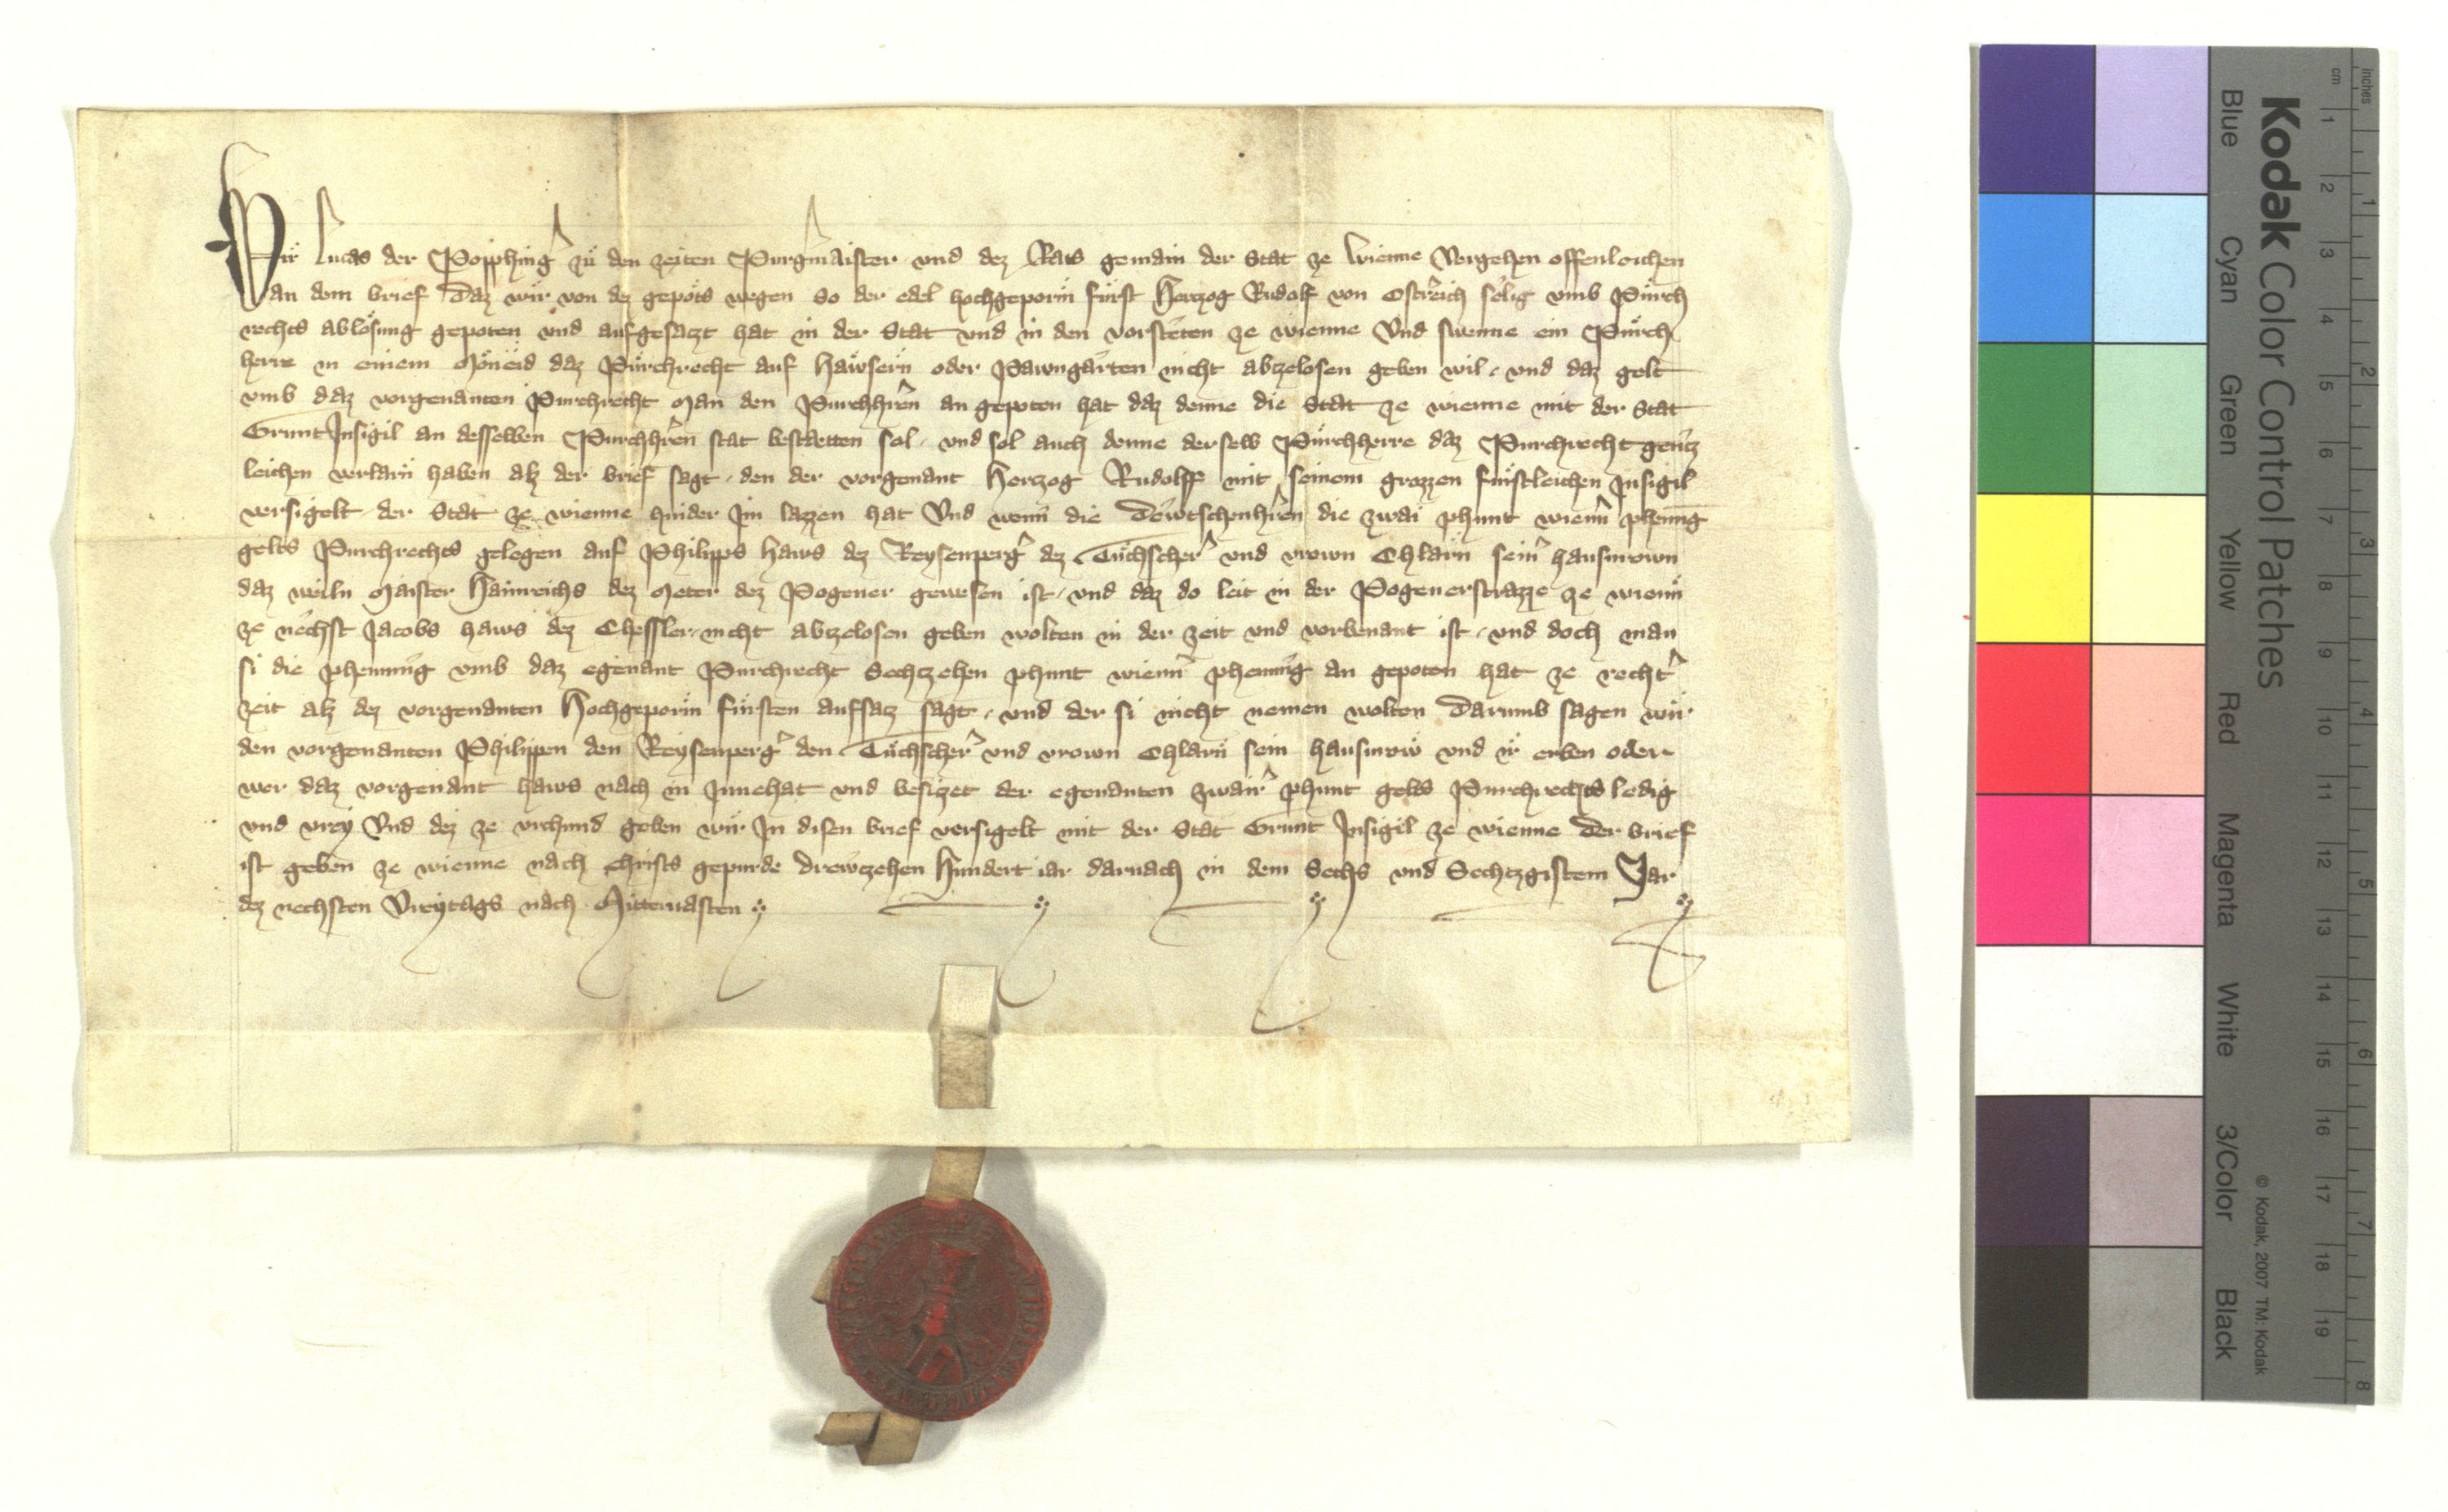 Wir Lucas der Popphinger zů den zeiten Purgermaister und dez Rats gemain der Stat ze Wienne Vergehen offenleichen
an dem brief Daz wir von dez gepots wegen so der edel hochgeporn fürst Hertzog Rudolf von Ostreich selig umb Purch
rechts ablösung gepoten und aufgesatzt hat in der Stat und in den vorsteten ze wienne Und swenne ein Purch
herre in einem Moneid daz Purchrecht auf Häwsern oder Pawngärten nicht abzelosen geben wil und daz gelt
umb daz vorgenanten Purchrecht Man den Purchhren an gepoten hat daz denne die Stat ze wienne mit der Stat
Grunt Insigil an desselben Purchhren stat bestaetten sol und sol auch denne derselb Purchherre daz Purchrecht gentz
leichen verlarn haben alz der brief sagt den der vorgenant Hertzog Rudolff mit seinem grozzen fürstleichen Insigil
versigelt der Stat ze wienne hinder Im lazzen hat Und wenn die Dewtschenhren die zwai phunt wienner phennig
gelts Purchrechts gelegen auf Philipps haws dez Reysenperger dez Tůchscherer und vrown Chlarn seiner hausvrown
daz weiln Maister Hainreichs dez Meter dez Pogener gewesen ist und daz do leit in der Pogenerstrazze ze wienn
ze nechst Jacobs haws dez Chessler nicht abzelosen geben wolten in der zeit und vorbenant ist und doch man
si die phenning umb daz egenant Purchrecht Sechtzehen phunt wienner phennig an gepoten hat ze rechter
zeit alz dez vorgenanten Hochgeporn fürsten aufsatz sagt und der si nicht nemen wolten Darumb sagen wir
den vorgenanten Philippen den Reysenperger den Tůchscherer und vrown Chlarn sein hausvrow und ir erben oder
wer daz vorgenant haws nach in Innehat und besitzet der egenanten zwair phunt gelts Purchrechts ledig
und vrey Und dez ze urchund geben wir In disen brief versigelt mit der Stat Grunt Insigil ze wienne Der brief
ist geben ze wienne nach Christs gepurde Drewtzehen Hundert iar darnach in dem Sechs und Sechtzgistem Jar
dez nechsten Vreytags nach Mittervasten
Kodak Color Control Patches
Blue Cyan Green Yellow Red Magenta White 3/Color Black
© Kodak, 2007 TM: Kodak
inches 1 2 3 4 5 6 7 8
cm 1 2 3 4 5 6 7 8 9 10 11 12 13 14 15 16 17 18 19